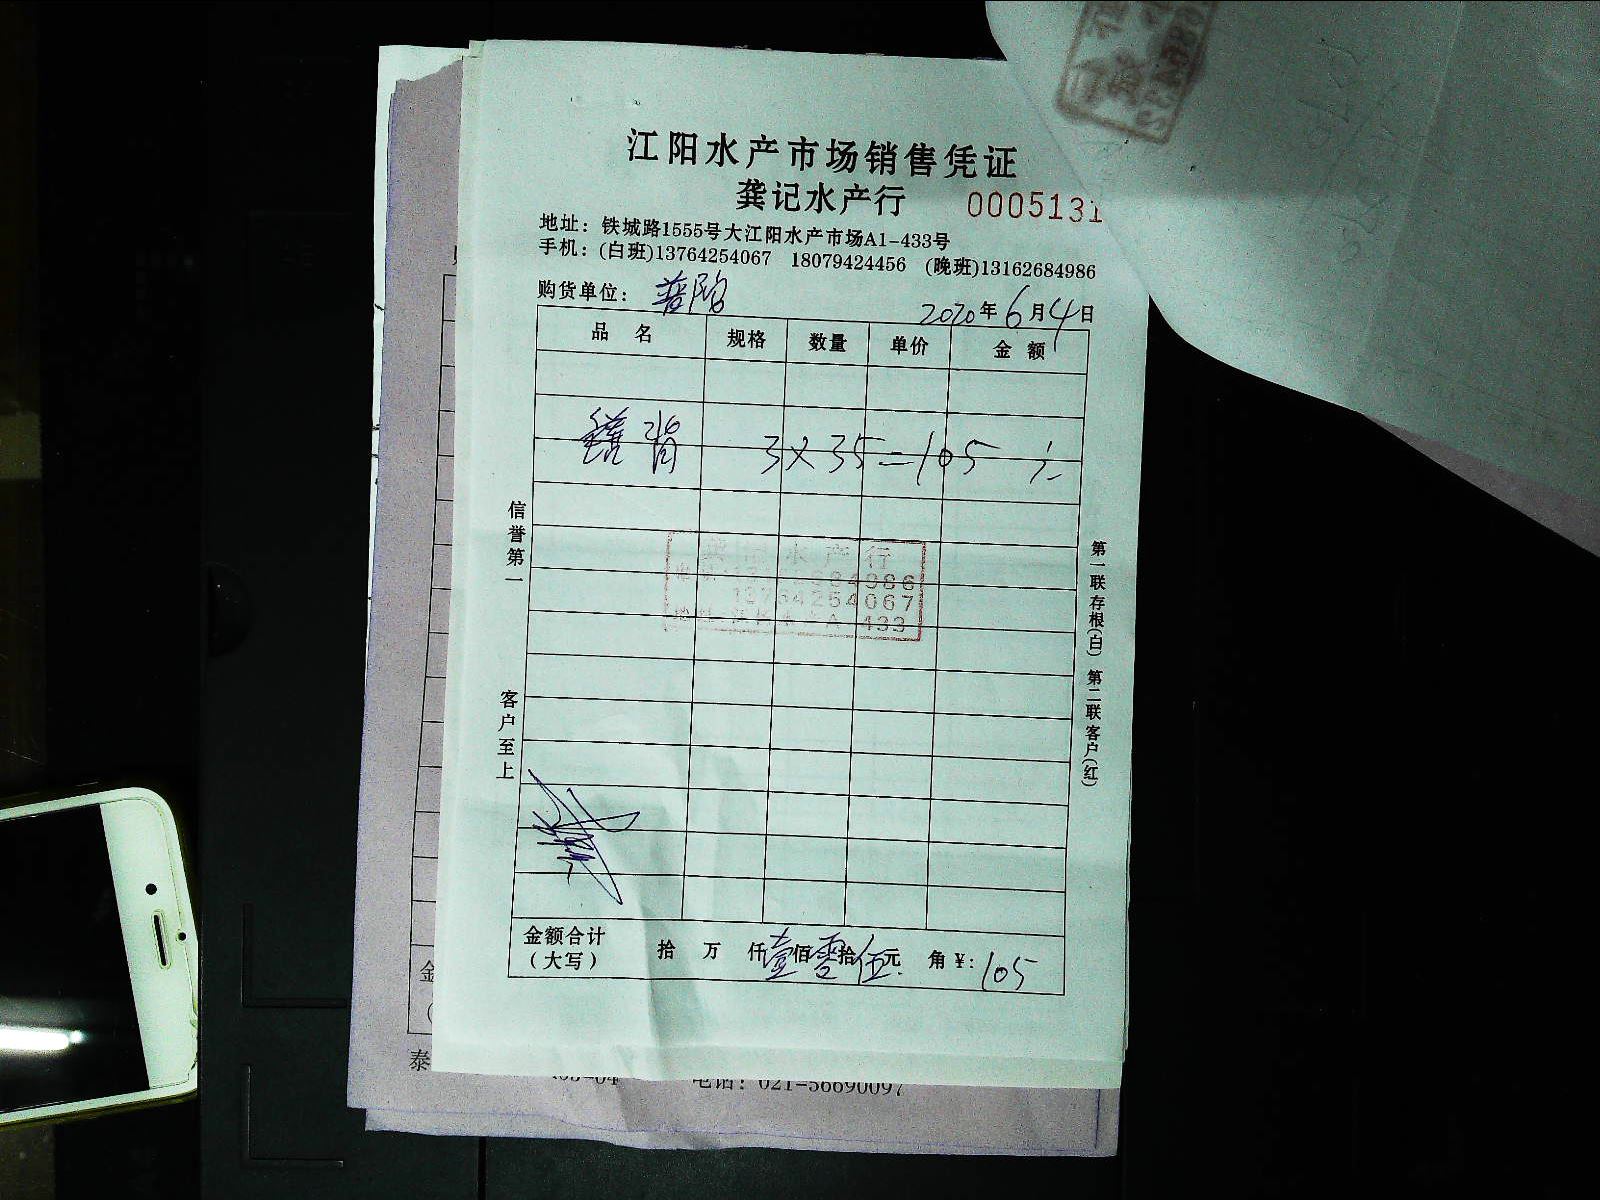 江阳水产市场销售凭证
龚记水产行 0005131
地址：铁城路1555号大江阳水产市场A1-433号
手机：(白班)13764254067 18079424456 (晚班)13162684986
购货单位：普陀
2020年6月4日
品名 规格 数量 单价 金额
背 3×35=105元
水产行
13764254067
433
信誉第一
客户至上
第一联存根(白) 第二联客户(红)
金额合计(大写) 拾 万 仟壹佰零拾伍元 角 ¥：105
金
泰
电话：021-56690097